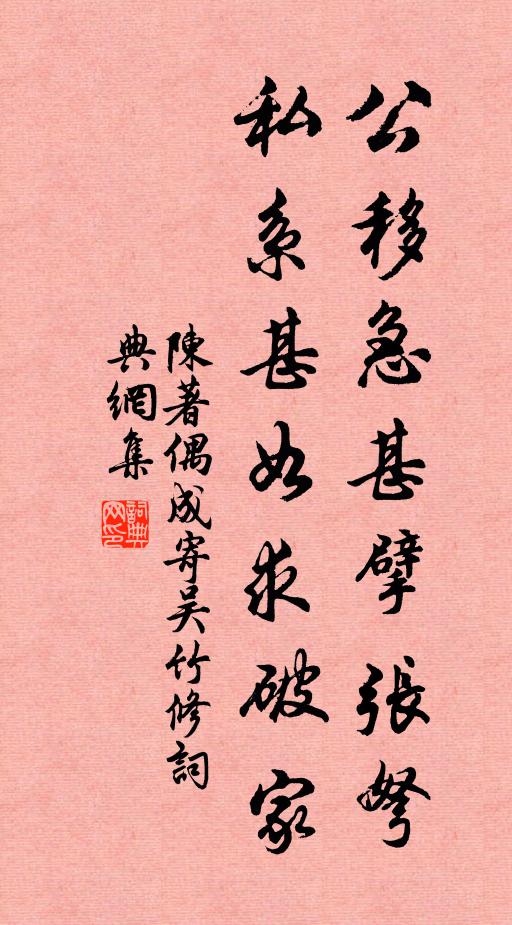 公移急甚擘張弩
私系甚如求破家
陳著偶成寄吴竹修詞
典網集
詞典
网印